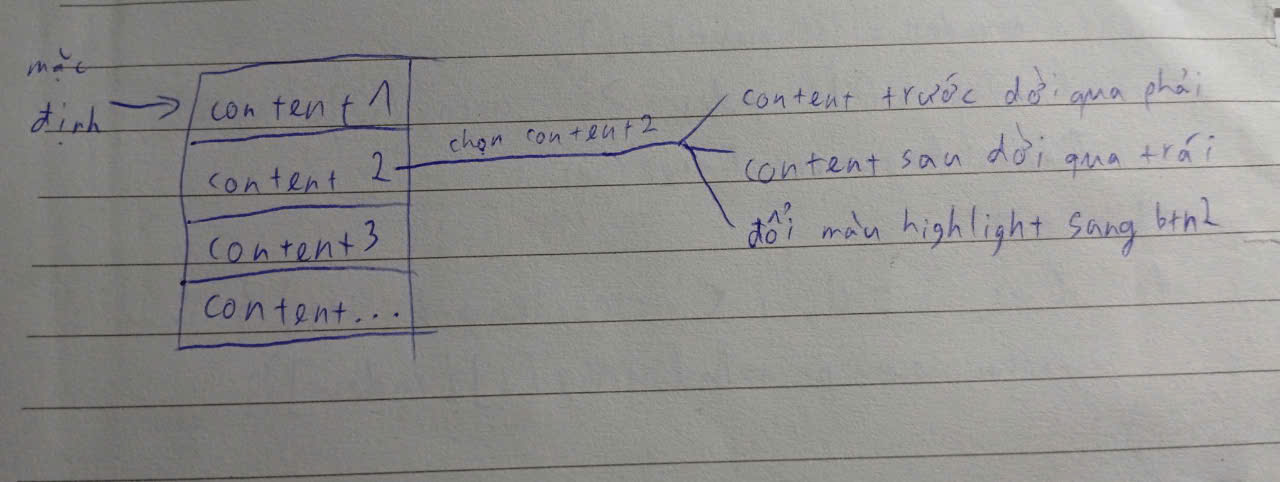 mặc
định
content 1
content 2
content 3
content...
chọn content 2
content trước dời qua phải
content sau dời qua trái
đổi màu highlight sang btn2